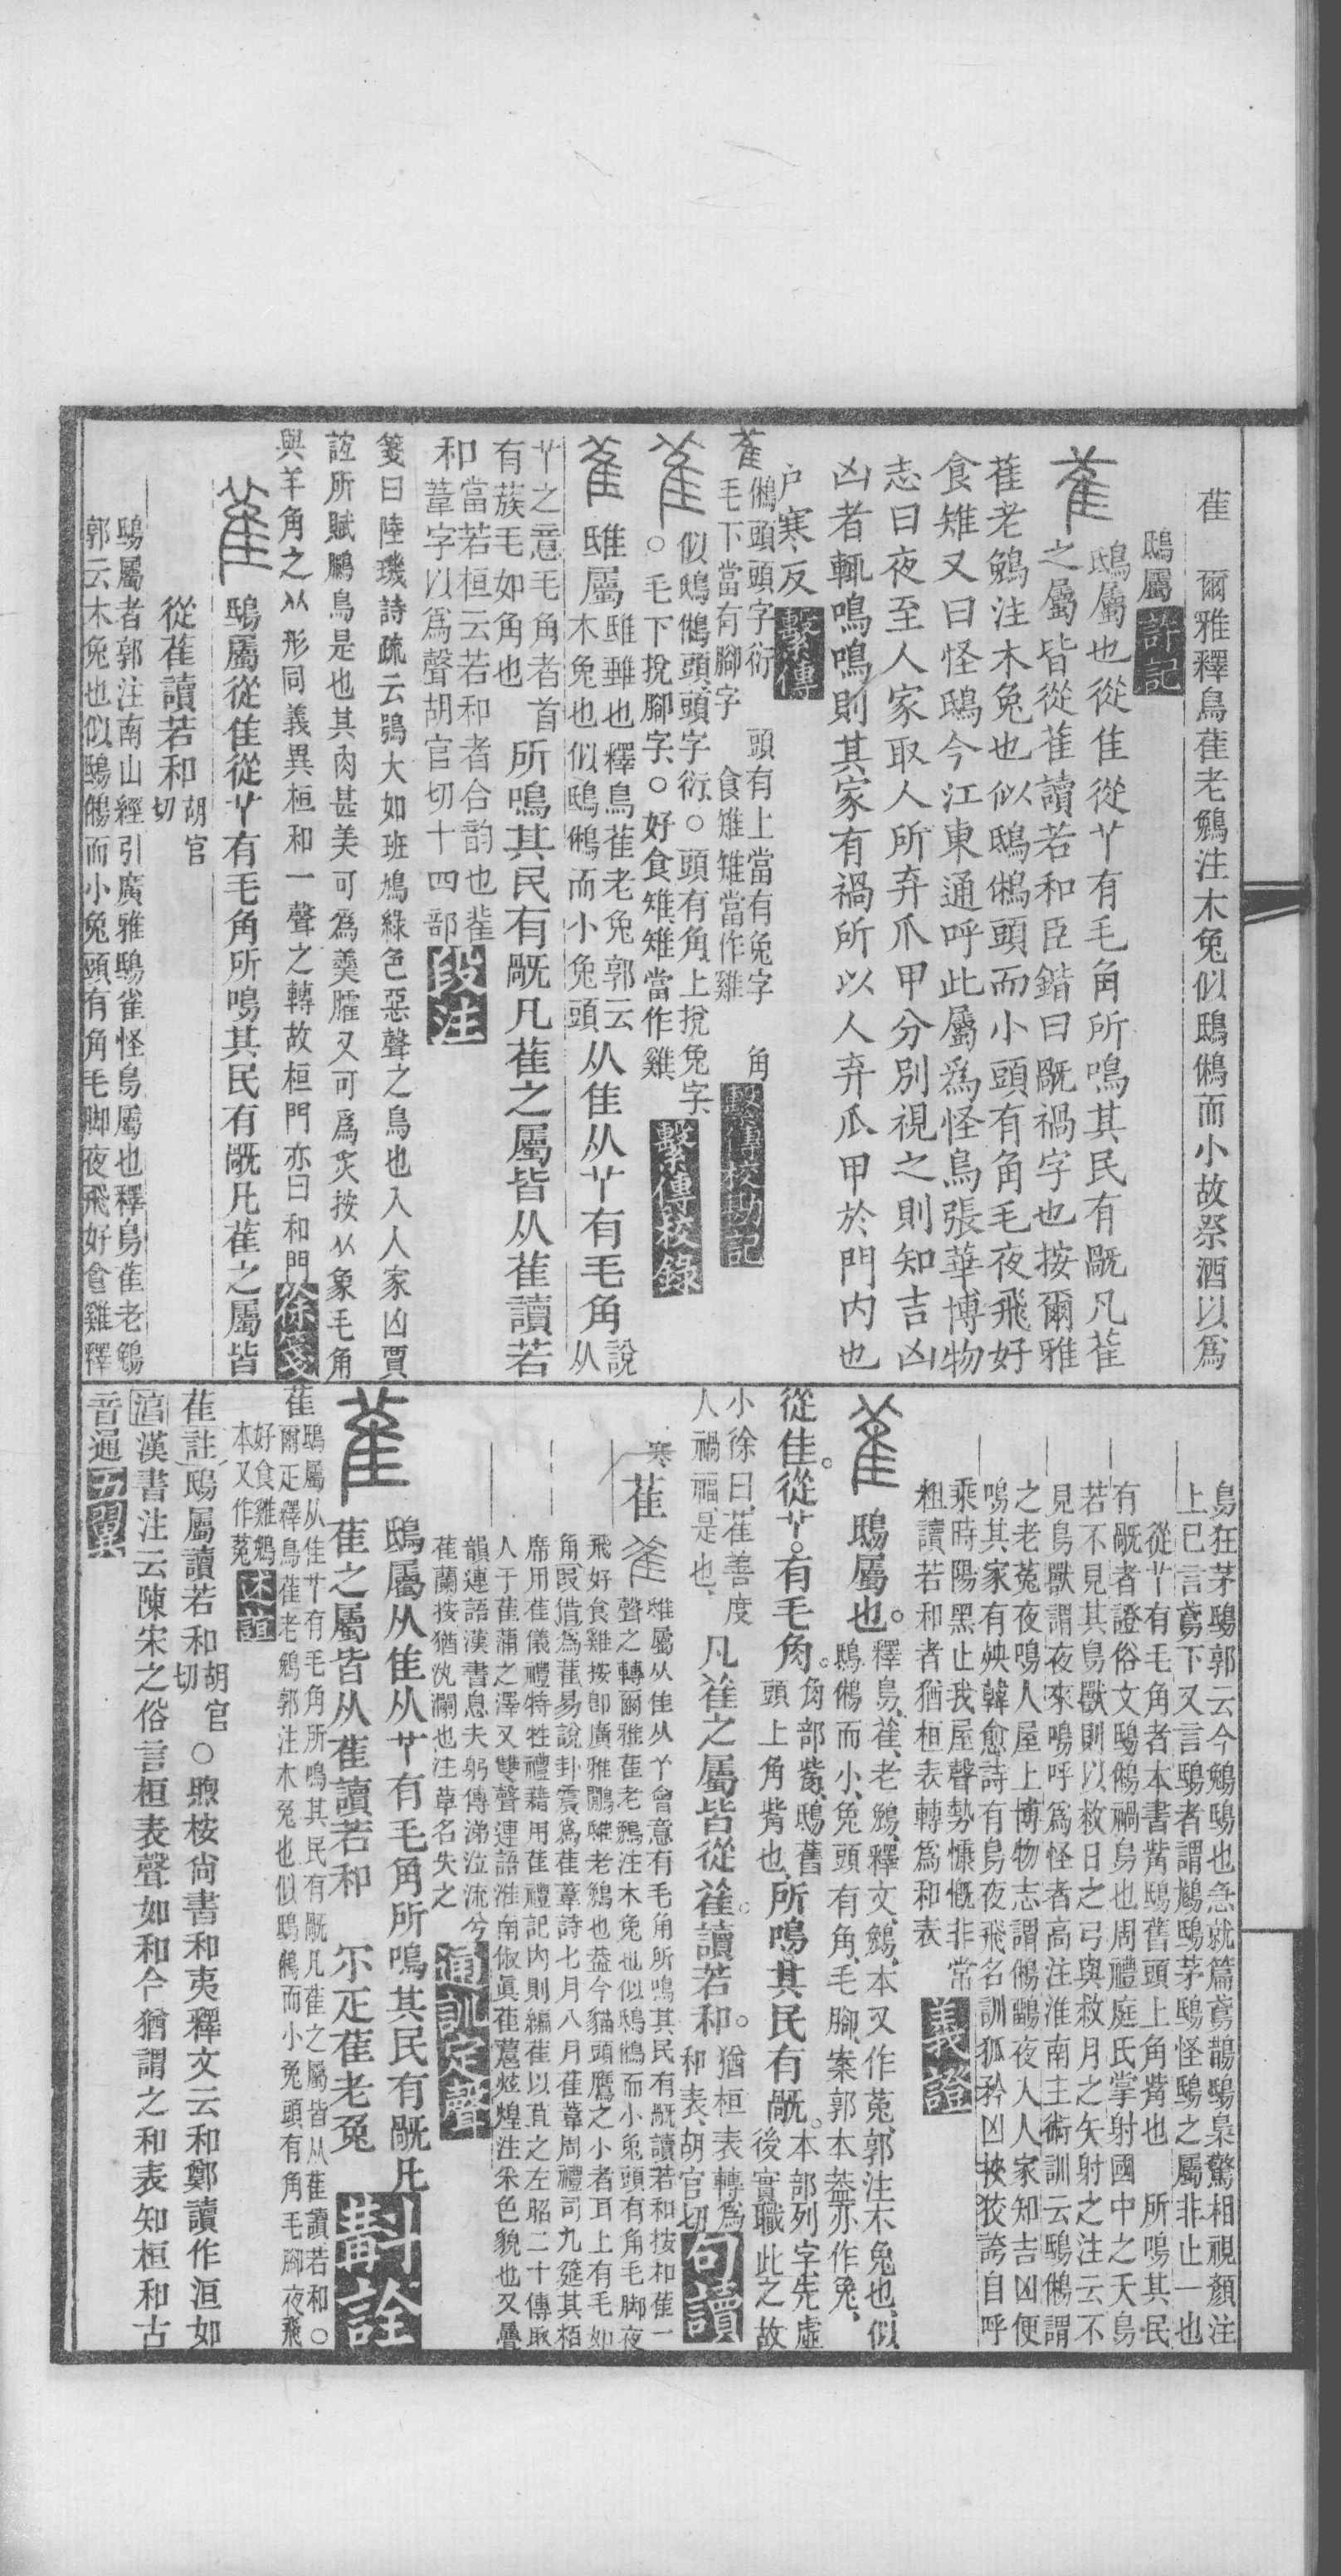 雈　爾雅釋鳥雈老鵵注木兔似鴟鵂而小故祭酒以爲
鴟屬許記
雈鴟屬也從隹從𦫳有毛角所鳴其民有𣄴凡雈
之屬皆從雈讀若和臣鍇曰𣄴禍字也按爾雅
雈老鵵注木兔也似鴟鵂頭而小頭有角毛夜飛好
食雉又曰怪鴟今江東通呼此屬爲怪鳥張華博物
志曰夜至人家取人所弃爪甲分別視之則知吉凶
凶者輒鳴鳴則其家有禍所以人弃爪甲於門内也
户寒反繫傳
雈鵂頭頭字衍　頭有上當有兔字　角
毛下當有腳字　食雉雉當作雞　繫傳校勘記
雈似鴟鵂頭頭字衍○頭有角上挩兔字
○毛下挩腳字○好食雉雉當作雞　繫傳校錄
雈雎屬雎雖也釋鳥雈老兔郭云
木兔也似鴟鵂而小兔頭从隹从𦫳有毛角說从
𦫳之意毛角者首
有蔟毛如角也所鳴其民有𣄴凡雈之屬皆从雈讀若
和當若桓云若和者合韵也雈
葦字以爲聲胡官切十四部段注
箋曰陸璣詩疏云鴞大如班鳩綠色惡聲之鳥也入人家凶賈
誼所賦鵩鳥是也其肉甚美可爲羹臛又可爲炙按从象毛角
與羊角之从形同義異桓和一聲之轉故桓門亦曰和門徐箋
雈鴟屬從隹從𦫳有毛角所鳴其民有𣄴凡雈之屬皆
從雈讀若和胡官切
鴟屬者郭注南山經引廣雅鴟雀怪鳥屬也釋鳥雈老鵵
郭云木兔也似鴟鵂而小兔頭有角毛脚夜飛好食雞釋
鳥狂茅鴟郭云今鵵鴟也急就篇鳶鵲鴟梟驚相視顏注
上已言鳶下又言鴟者謂鵵鴟茅鴟怪鴟之屬非止一也
從𦫳有毛角者本書觜鴟舊頭上角觜也　所鳴其民
有𣄴者證俗文鴟鵂禍鳥也周禮庭氏掌射國中之夭鳥
若不見其鳥獸則以救日之弓與救月之矢射之注云不
見鳥獸謂夜來鳴呼爲怪者高注淮南主術訓云鴟鵂謂
之老菟夜鳴人屋上博物志謂鵂鶹夜入人家知吉凶便
鳴其家有殃韓愈詩有鳥夜飛名訓狐矜凶挾狡誇自呼
乘時陽黑止我屋聲勢慷慨非常
粗讀若和者猶桓表轉爲和表義證
雈鴟屬也。釋鳥、雈、老鵵、釋文、鵵、本又作菟、郭注、木兔也、似
鴟鵂而小、兔頭有角、毛腳、案郭本蓋亦作兔、
從隹。從𦫳。有毛角。角部觜、鴟舊
頭上角觜也、所鳴其民有𣄴。本部列字、先虛
後實、職此之故
小徐曰、雈善度
人禍福、是也、凡雈之屬皆從雈。讀若和。猶桓表轉爲
和表、胡官切句讀
寒雈雈雎屬从隹从𦫳會意有毛角所鳴其民有𣄴讀若和按和雈一
聲之轉爾雅雈老鵵注木兔也似鴟鵂而小兔頭有角毛脚夜
飛好食雞按卽廣雅鵩鸆老鵵也蓋今貓頭鷹之小者耳上有毛如
角叚借爲萑易說卦震爲萑葦詩七月八月萑葦周禮司几筵其柏
席用萑儀禮特牲禮藉用萑禮記內則編萑以苴之左昭二十傳取
人于萑蒲之澤又雙聲連語淮南俶眞萑蔰炫煌注采色貌也又疊
韻連語漢書息夫躬傳涕泣流兮
萑蘭按猶汍瀾也注草名失之通訓定聲
雈鴟屬从隹从𦫳有毛角所鳴其民有𣄴凡
雈之屬皆从雈讀若和　尔疋雈老兔斠詮
雈鴟屬从隹𦫳有毛角所鳴其民有𣄴凡雈之屬皆从雈讀若和○
爾疋釋鳥雈老鵵郭注木兔也似鴟鵂而小兔頭有角毛腳夜飛
好食雞鵵
本又作菟述誼
雈註鴟屬讀若和胡官切○煦桉尙書和夷釋文云和鄭讀作洹如
淳漢書注云陳宋之俗言桓表聲如和今猶謂之和表知桓和古
音通五翼